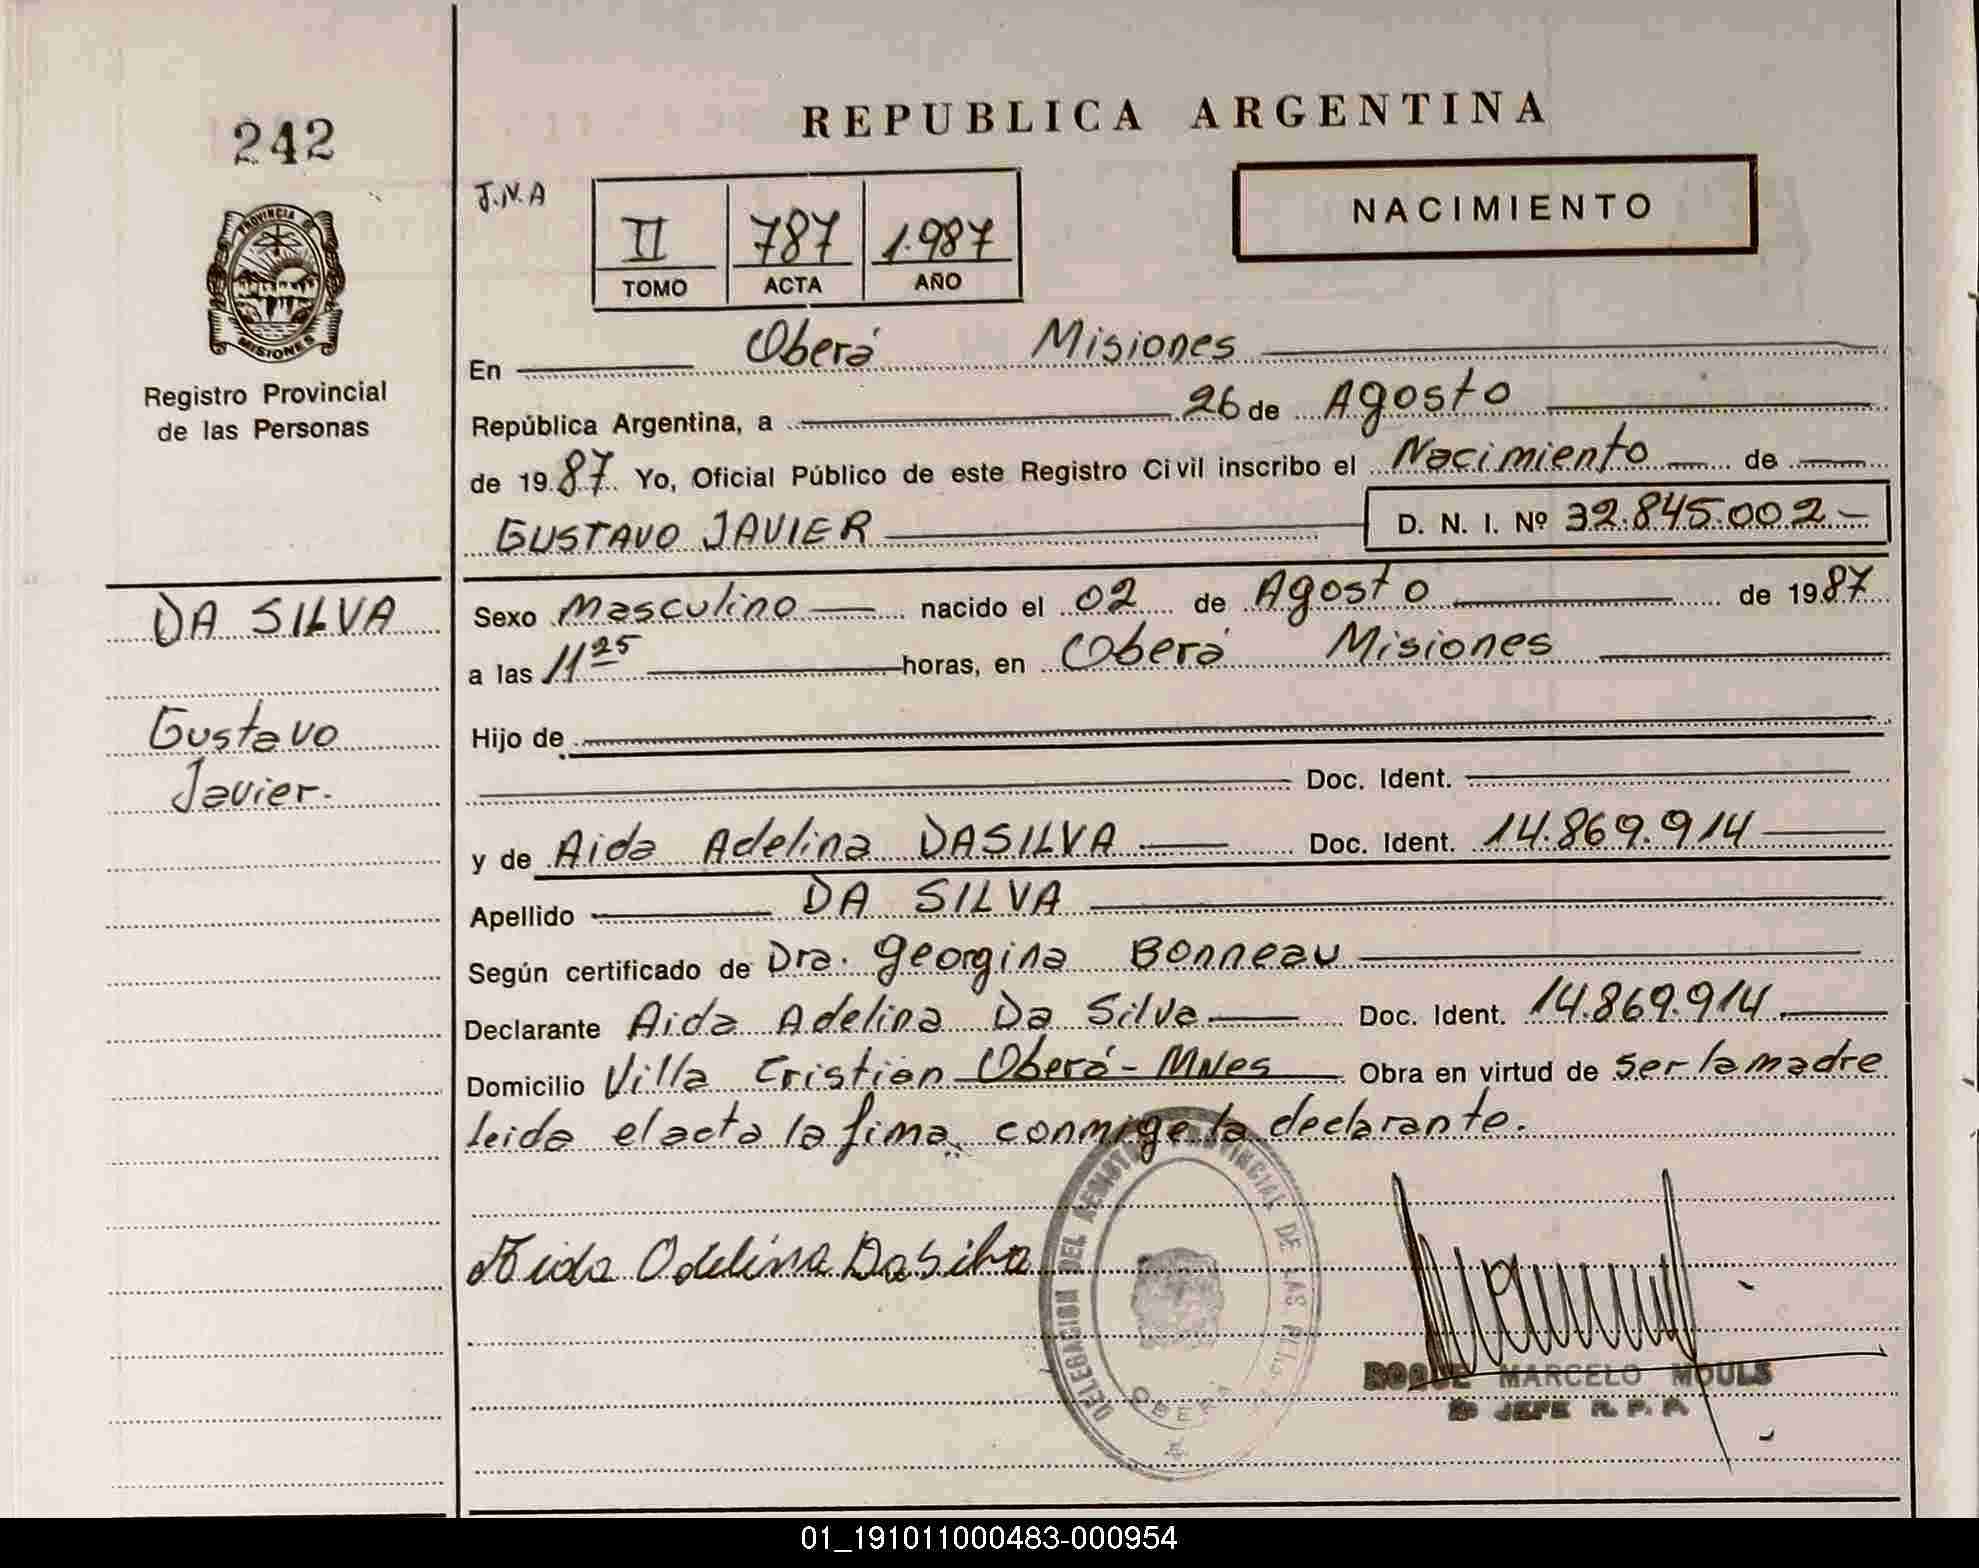 242
REPUBLICA ARGENTINA
J.N.A
II 787 1.987
TOMO ACTA AÑO
NACIMIENTO
PROVINCIA DE
MISIONES
Registro Provincial
de las Personas
En Oberá Misiones
República Argentina, a 26 de Agosto
de 1987 Yo, Oficial Público de este Registro Civil inscribo el Nacimiento de
GUSTAVO JAVIER D. N. I. Nº 32.845.002-
DA SILVA
Gustavo
Javier.
Sexo Masculino nacido el 02 de Agosto de 1987
a las 11 25 horas, en Oberá Misiones
Hijo de
Doc. Ident.
y de Aida Adelina DASILVA Doc. Ident. 14.869.914
Apellido DA SILVA
Según certificado de Dra. Georgina Bonneau
Declarante Aida Adelina Da Silva Doc. Ident. 14.869.914
Domicilio Villa Cristian Oberá - Mnes Obra en virtud de ser la madre
leida el acta la fima conmigo la declarante.
Aida Adelina DaSilva
DELEGACION DEL REGISTRO PROVINCIAL DE LAS PERS.
OBERA
ROQUE MARCELO MOULS
JEFE R. P. P.
01_191011000483-000954